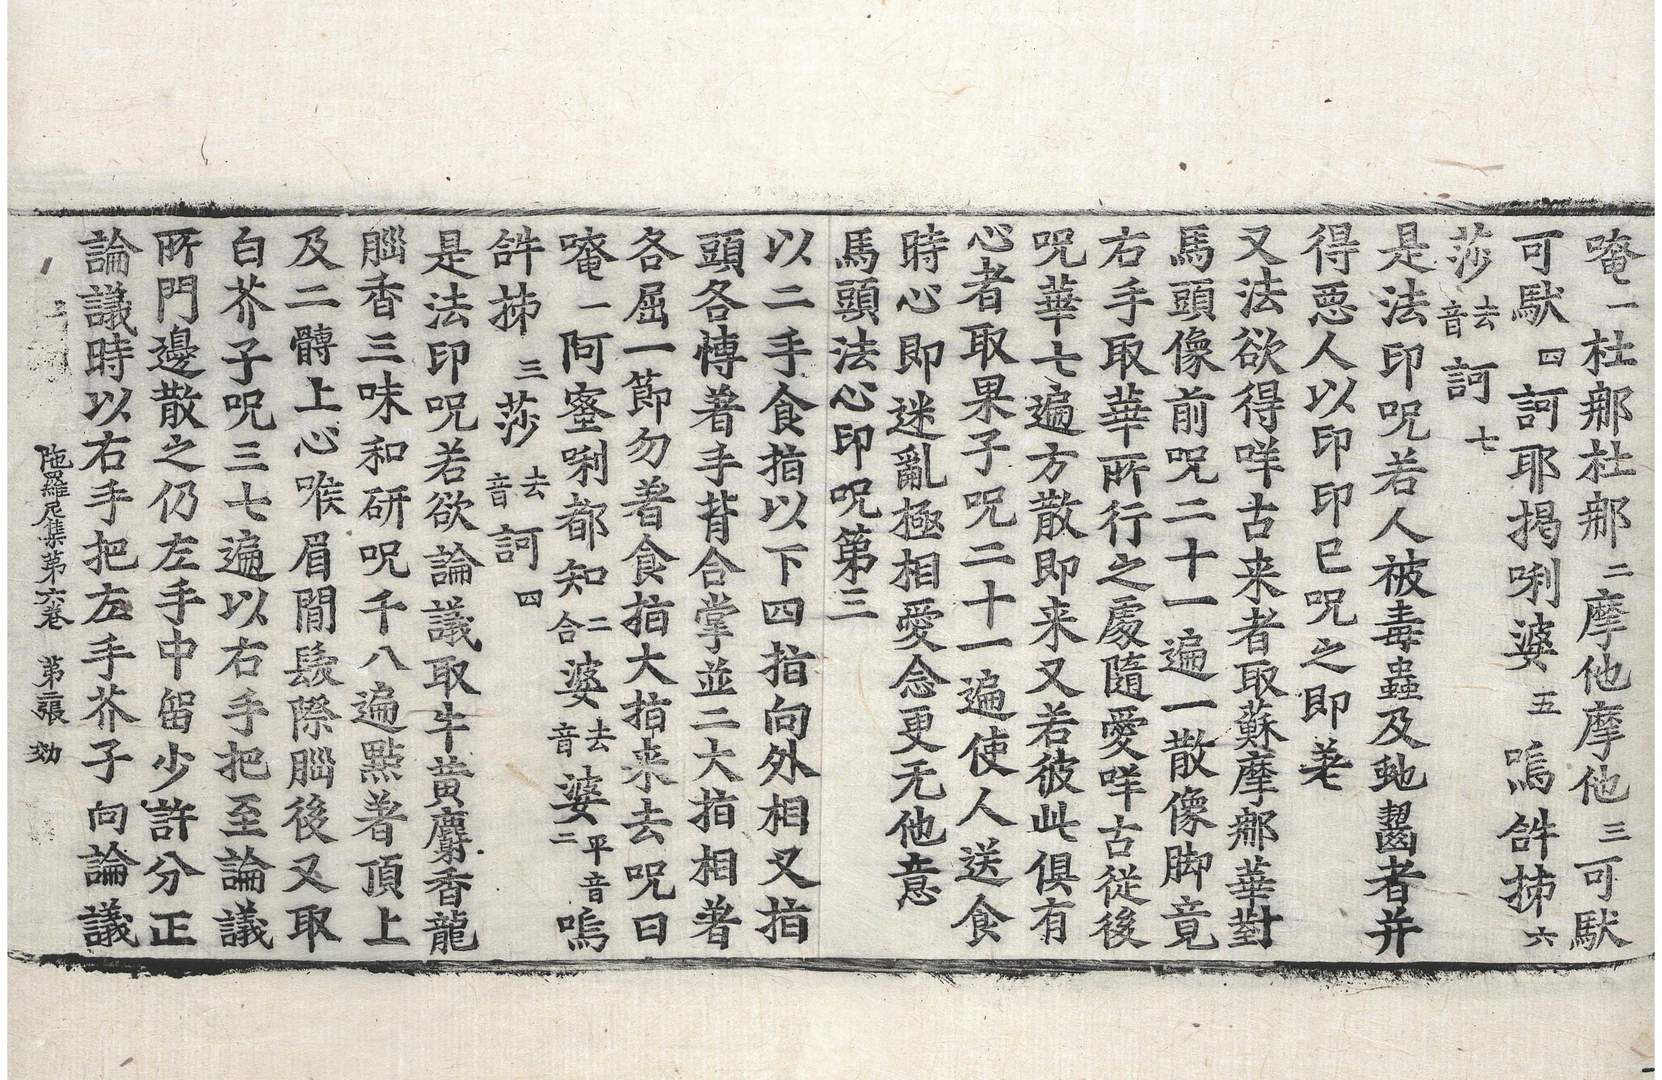 唵一杜那杜那二摩他摩他三可馱
可馱四訶耶揭唎婆五嗚𤙖抶六
莎去音訶七
是法印呪若人被毒蟲及虵齧者并
得惡人以印印已呪之即差
又法欲得咩古来者取蘇摩那華對
馬頭像前呪二十一遍一散像脚竟
右手取華所行之處隨愛咩古從後
呪華七遍方散即来又若彼此俱有
心者取果子呪二十一遍使人送食
時心即迷亂極相愛念更无他意
馬頭法心印呪第三
以二手食指以下四指向外相叉指
頭各博著手背合掌並二大指相著
各屈一節勿著食指大指来去呪曰
唵一阿蜜唎都知二合婆去音婆平音二嗚
𤙖抶三莎去音訶四
是法印呪若欲論議取牛黃麝香龍
腦香三味和研呪千八遍點著頂上
及二髆上心喉眉間髮際腦後又取
白芥子呪三七遍以右手把至論議
所門邊散之仍左手中留少許分正
論議時以右手把左手芥子向論議
陁羅尼集第六卷 第二張 効